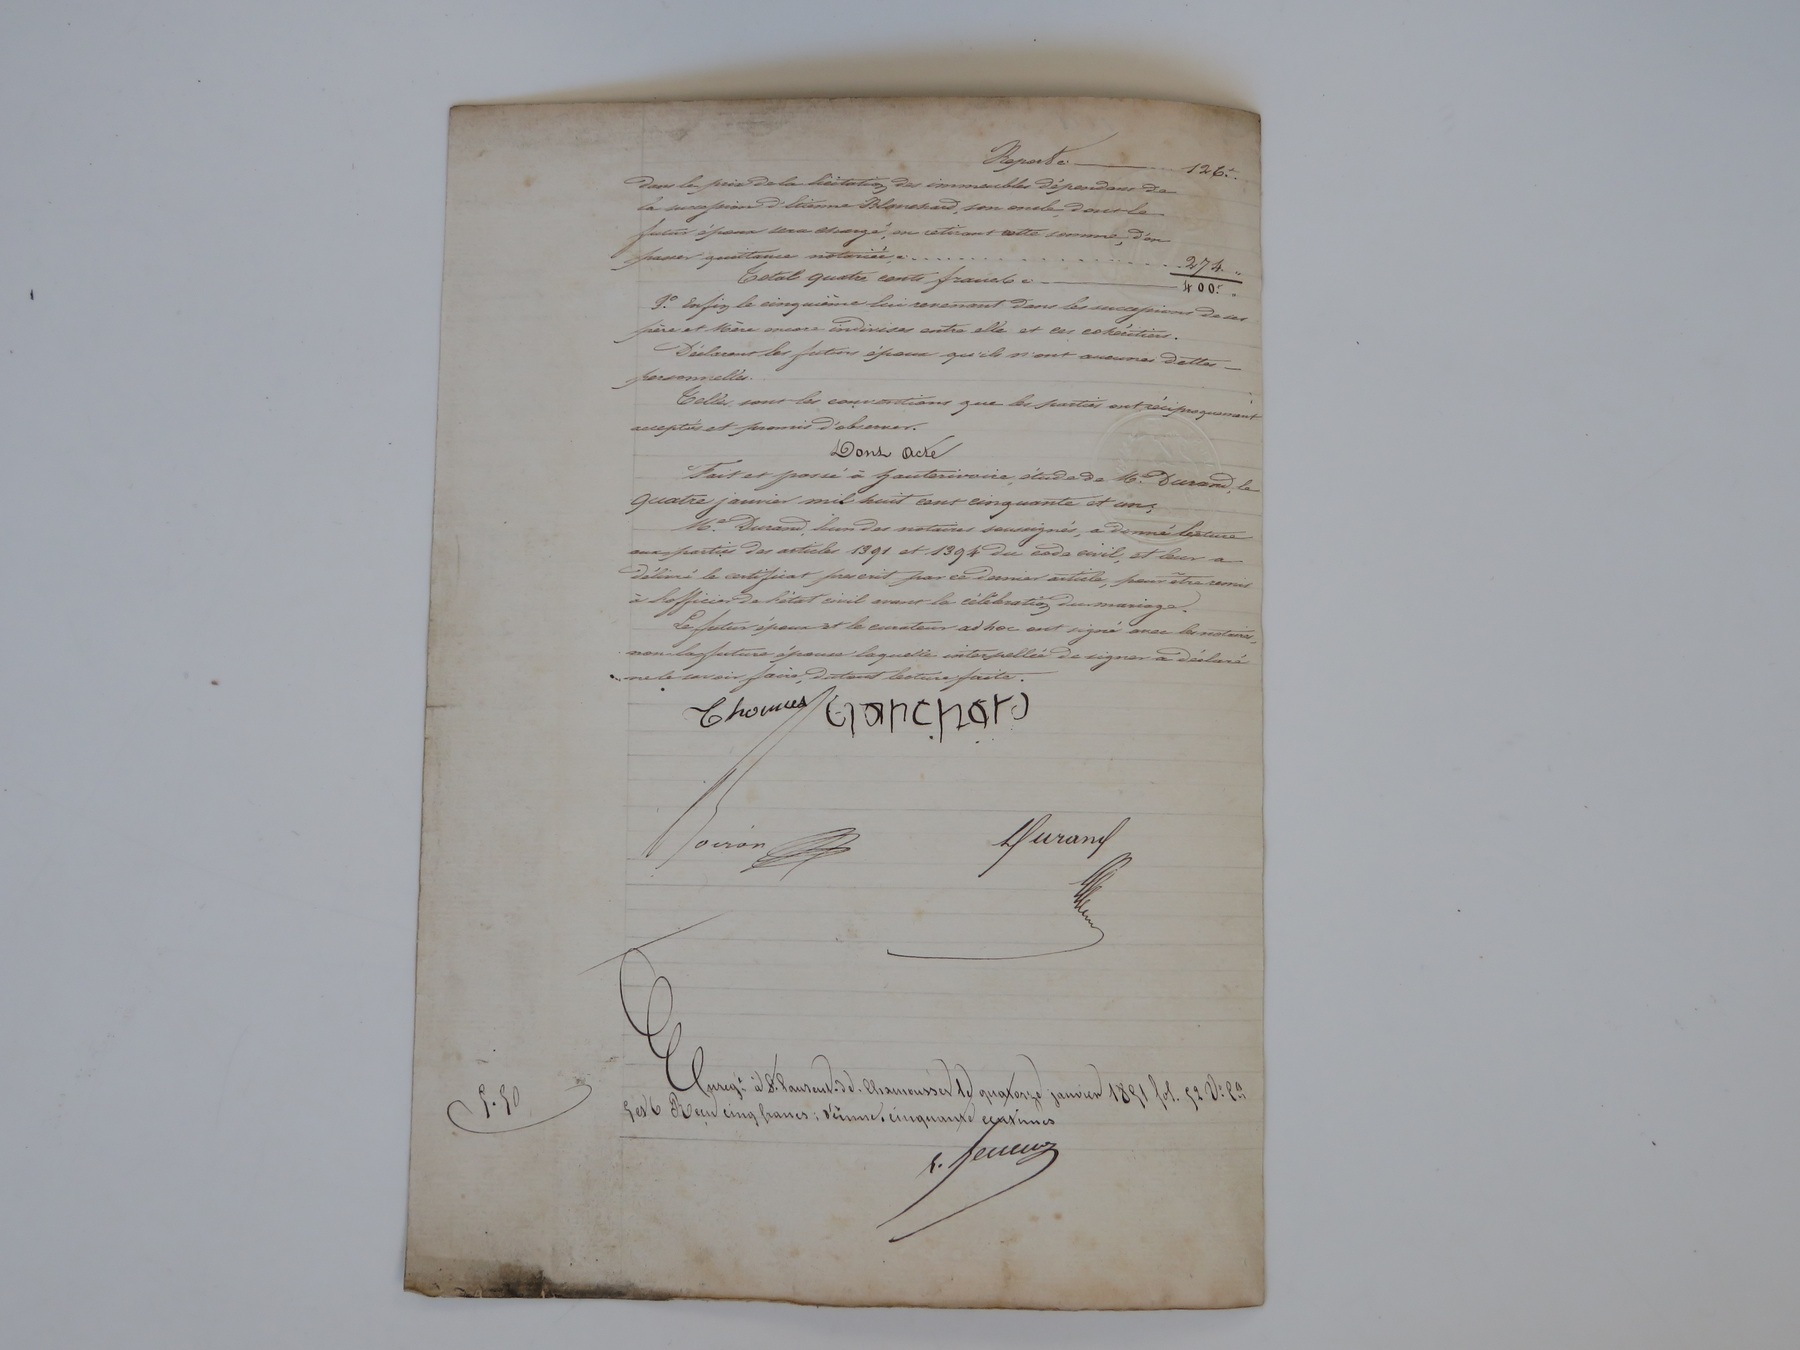 Report ci 126."
dans le prix de la licitation des immeubles dépendans de
la succession d'Etienne Blanchard, son oncle, dont le
futur époux sera chargé, en retirant cette somme, d'en
passer quittance notariée, ci 274. "
Total quatre cents francs ci 400." "
3.° Enfin le cinquième lui revenant dans les successions de ses
père et mère encore indivises entre elle et ses cohéritiers.
Déclarent les futurs époux qu'ils n'ont aucunes dettes
personnelles.
Telles sont les conventions que les parties ont réciproquement
acceptées et promis d'observer.
Dont acte
Fait et passé à hauterivoire, étude de M.e Durand, le
quatre janvier mil huit cent cinquante et un;
M.e Durand, l'un des notaires soussignés, a donné lecture
aux parties des articles 1391 et 1394 du code civil, et leur a
délivré le certificat prescrit par ce dernier article, pour être remis
à l'officier de l'état civil avant la célébration du mariage.
Le futur époux et le curateur ad hoc ont signé avec les notaires,
non la future épouse laquelle interpellée de signer a déclaré
ne le savoir faire, du tout lecture faite.
Thomas Blanchard
Durand
Enreg.t à S.t Laurent-de-Chamousset le quatorze janvier 1851 fol. 52 V.o C.es
5 et 6 Reçu cinq francs; décime, cinquante centimes
5.50